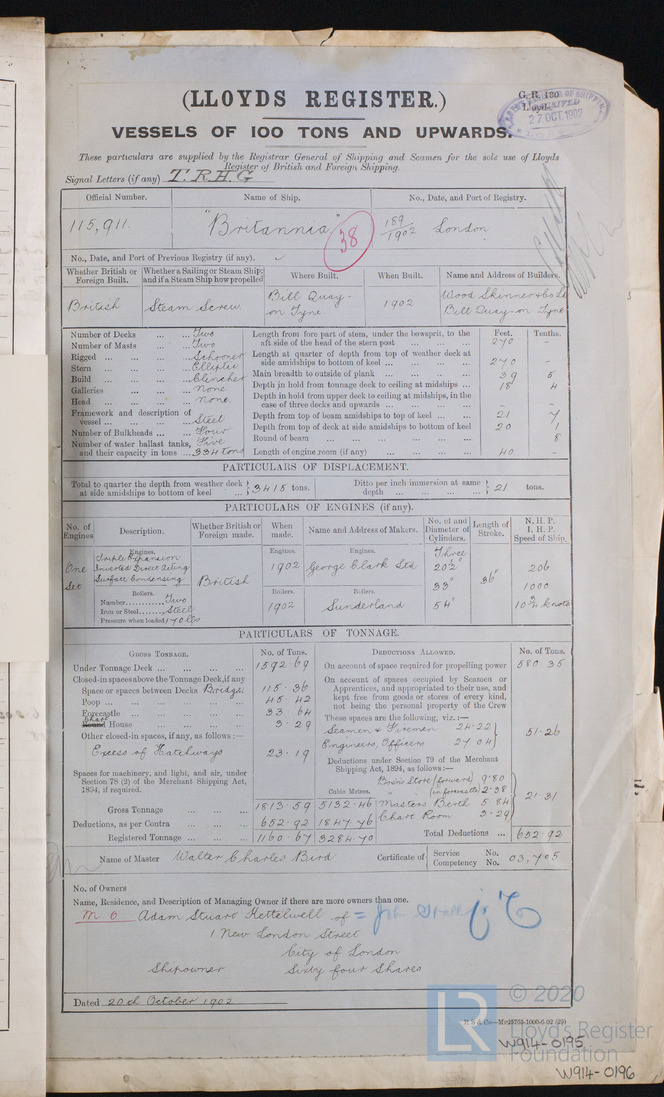 (LLOYDS REGISTER.)
G. R. 180
Lloyds.
RECEIVED
27 OCT. 1902
VESSELS OF 100 TONS AND UPWARDS.
These particulars are supplied by the Registrar General of Shipping and Seamen for the sole use of Lloyds
Register of British and Foreign Shipping.
Signal Letters (if any) T. R. H. G
Official Number. Name of Ship. No., Date, and Port of Registry.
115,911 "Britannia" 38 189/1902 London
No., Date, and Port of Previous Registry (if any).
Whether British or Foreign Built. Whether a Sailing or Steam Ship; and if a Steam Ship how propelled Where Built. When Built. Name and Address of Builders.
British Steam Screw Bill Quay-on Tyne 1902 Wood Skinner & Co Ld Bill Quay-on Tyne
Feet. Tenths.
Number of Decks ... Two
Number of Masts ... Two
Rigged ... Schooner
Stern ... Elliptic
Build ... Clencher
Galleries ... None
Head ... None
Framework and description of vessel ... Steel
Number of Bulkheads ... Four
Number of water ballast tanks, and their capacity in tons ... Five 334 tons
Length from fore part of stem, under the bowsprit, to the aft side of the head of the stern post ... 270 -
Length at quarter of depth from top of weather deck at side amidships to bottom of keel ... 270 -
Main breadth to outside of plank ... 39 5
Depth in hold from tonnage deck to ceiling at midships ... 18 4
Depth in hold from upper deck to ceiling at midships, in the case of three decks and upwards ... - -
Depth from top of beam amidships to top of keel ... 21 7
Depth from top of deck at side amidships to bottom of keel 20 1
Round of beam ... 8
Length of engine room (if any) ... 40 -
PARTICULARS OF DISPLACEMENT.
Total to quarter the depth from weather deck at side amidships to bottom of keel ... 3415 tons. Ditto per inch immersion at same depth ... 21 tons.
PARTICULARS OF ENGINES (if any).
No. of Engines Description. Whether British or Foreign made. When made. Name and Address of Makers. No. of and Diameter of Cylinders. Length of Stroke. N. H. P. I. H. P. Speed of Ship.
Engines. Engines. Engines. Three
One Set Triple Expansion Inverted Direct Acting Surface Condensing British 1902 George Clark Ltd 20½" 33" 54" 36" 206 1000 10¾ knots
Boilers. Boilers. Boilers.
Number ... Two
Iron or Steel ... Steel 1902 Sunderland
Pressure when loaded 170 lbs
PARTICULARS OF TONNAGE.
GROSS TONNAGE. No. of Tons. DEDUCTIONS ALLOWED. No. of Tons.
Under Tonnage Deck ... 1592.69
Closed-in spaces above the Tonnage Deck, if any
Space or spaces between Decks Bridge 115.36
Poop ... 45.42
Forecastle ... 33.64
Chart
Round House ... 3.29
Other closed-in spaces, if any, as follows:—
Excess of Hatchways 23.19
Spaces for machinery, and light, and air, under Section 78 (2) of the Merchant Shipping Act, 1894, if required.
On account of space required for propelling power 580 35
On account of spaces occupied by Seamen or Apprentices, and appropriated to their use, and kept free from goods or stores of every kind, not being the personal property of the Crew
These spaces are the following, viz.:—
Seamen & Firemen 24.22
Engineers, Officers 27 04 51.26
Deductions under Section 79 of the Merchant Shipping Act, 1894, as follows:—
Bosn's Store (forward) 9.80
Cubic Metres. " (in forecastle) 2.38
Masters Berth 5 84
Chart Room 3.29 21.31
Gross Tonnage ... 1813.59 5132.46
Deductions, as per Contra ... 652.92 1847.76 Total Deductions ... 652.92
Registered Tonnage ... 1160.67 3284.70
Name of Master Walter Charles Bird Certificate of Service No. Competency No. 03,705
No. of Owners
Name, Residence, and Description of Managing Owner if there are more owners than one.
M O Adam Stuart Kettelwell of
1 New London Street
City of London
Shipowner Sixty four Shares
Dated 20th October 1902
© 2020
Lloyd's Register
Foundation
LR
W914-0195
W914-0196